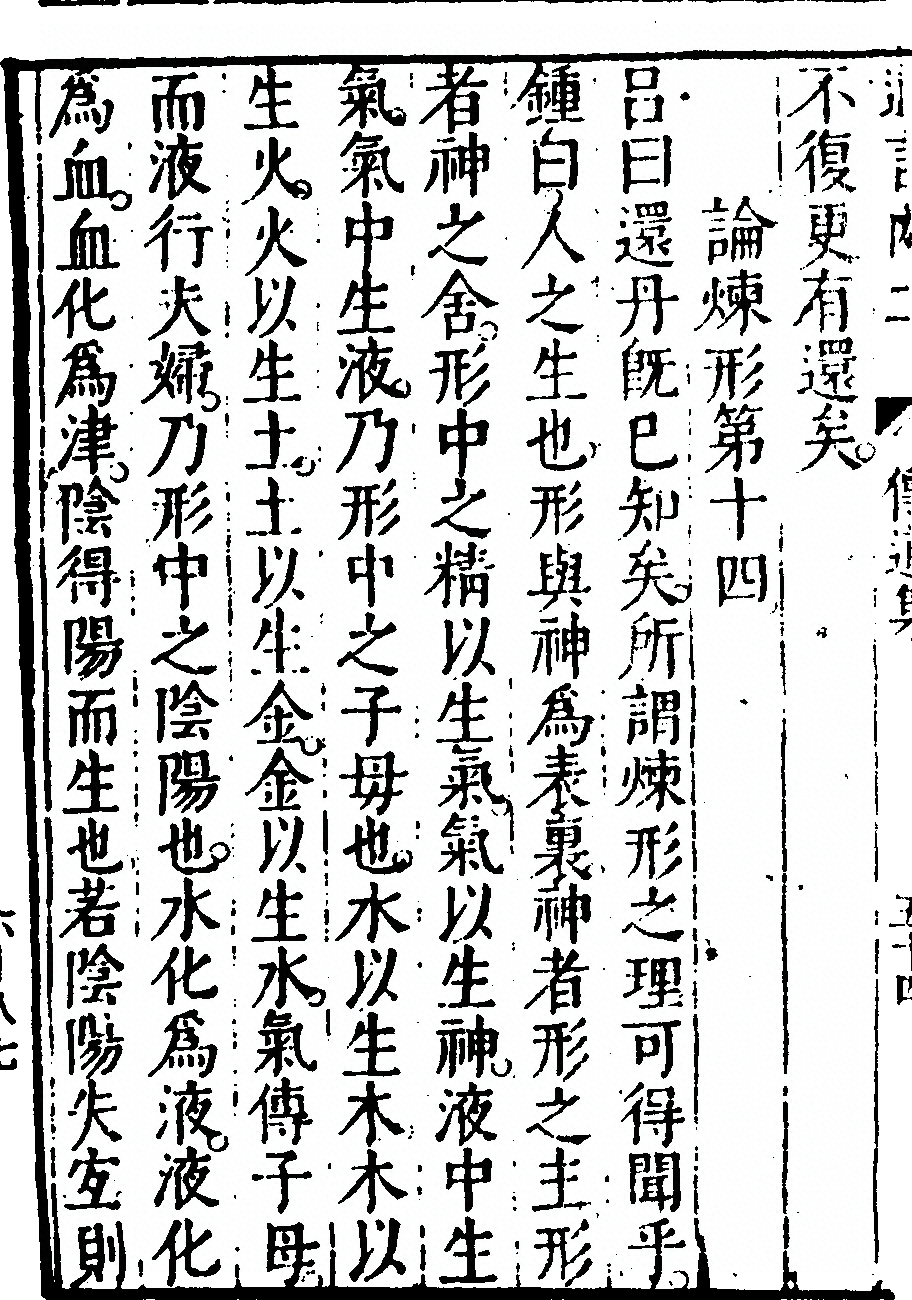 不復更有還矣。
論煉形第十四
呂曰還丹既已知矣。所謂煉形之理可得聞乎。
鍾曰人之生也形與神爲表裏神者形之主形
者神之舍。形中之精以生氣。氣以生神。液中生
氣。氣中生液。乃形中之子毋也。水以生木木以
生火。火以生土。土以生金。金以生水。氣傳子毋
而液行夫婦。乃形中之陰陽也。水化爲液。液化
爲血。血化爲津。陰得陽而生也若陰陽失宐則